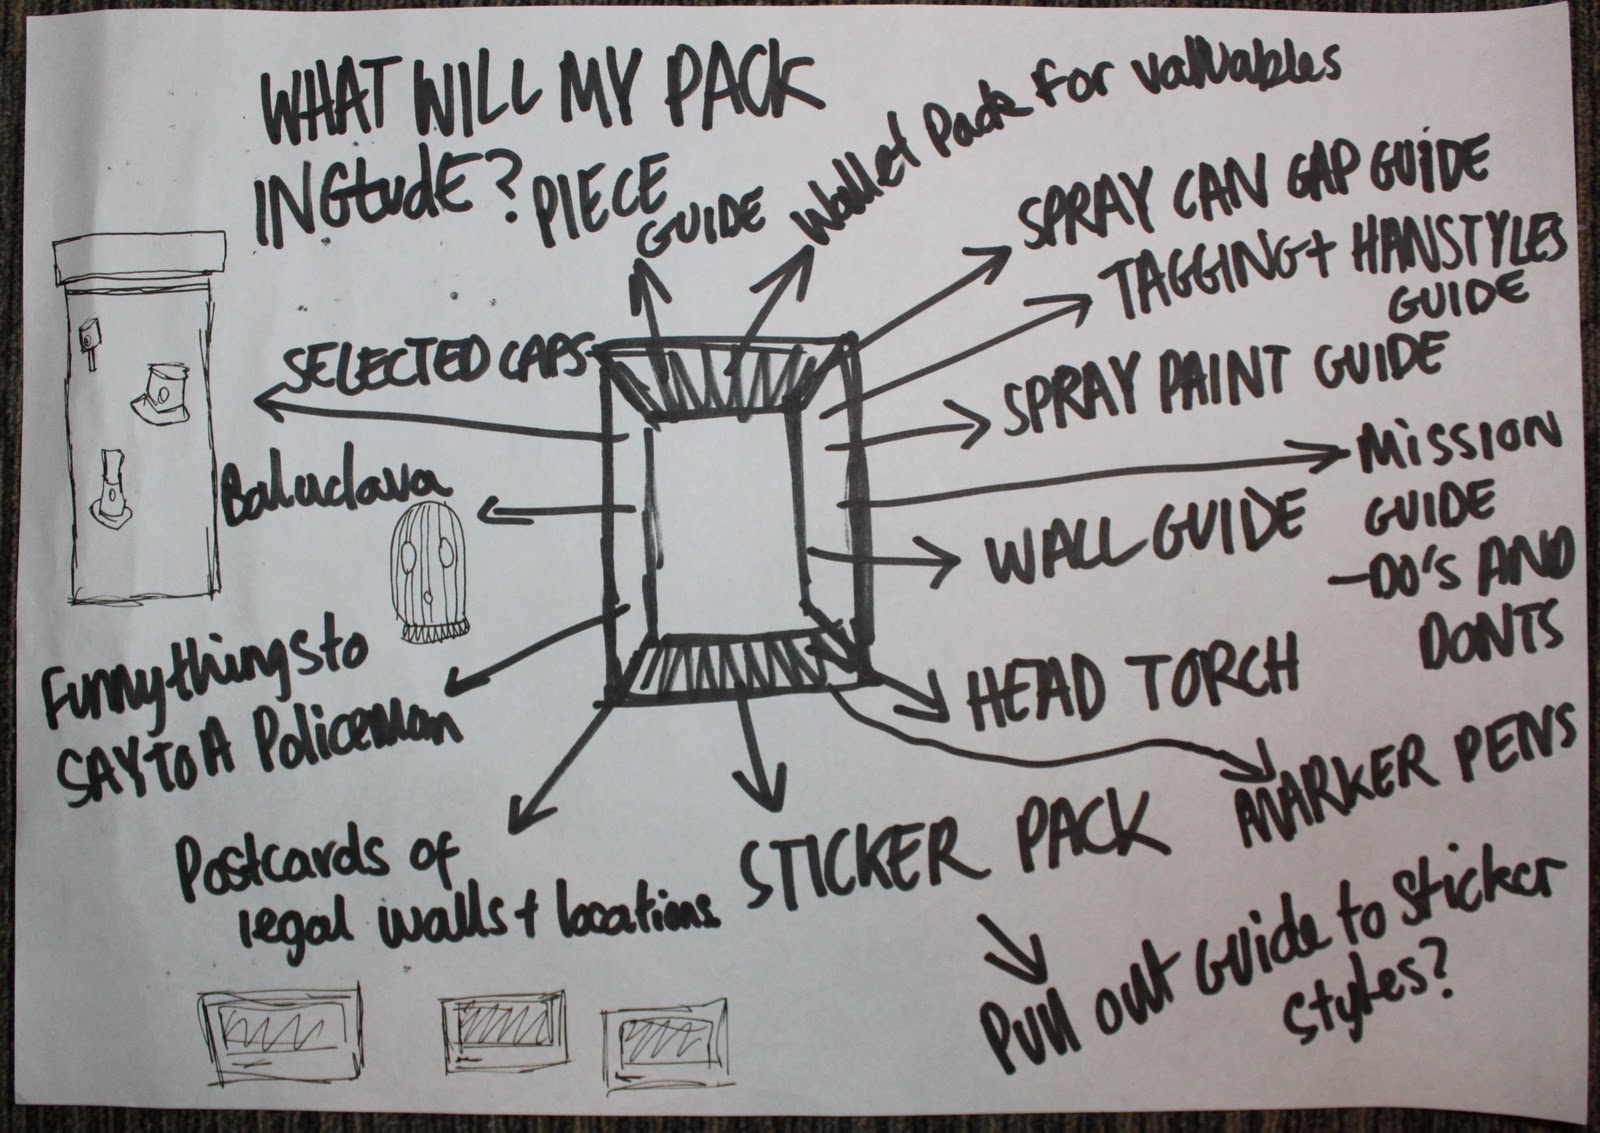 WHAT WILL MY PACK
INCLUDE?
PIECE
GUIDE
Wallet Pack For valuables
SPRAY CAN GAP GUIDE
TAGGING + HANSTYLES
GUIDE
SELECTED CAPS
SPRAY PAINT GUIDE
MISSION
GUIDE
-DO'S AND
DONTS
Baluclava
WALL GUIDE
Funny things to
SAY TO A Policeman
HEAD TORCH
MARKER PENS
Postcards of
legal walls + locations
STICKER PACK
Pull out GUIDE to Sticker
styles?